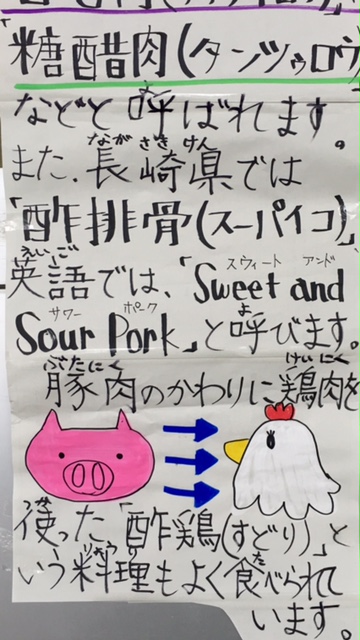 「糖醋肉(タンツゥロウ)
などと呼ばれます。
また、長崎県では
「酢排骨(スーパイコ)」
英語では、「Sweet and
Sour Pork」と呼びます。
豚肉のかわりに鶏肉を
使った「酢鶏(すどり)」と
いう料理もよく食べられて
います。